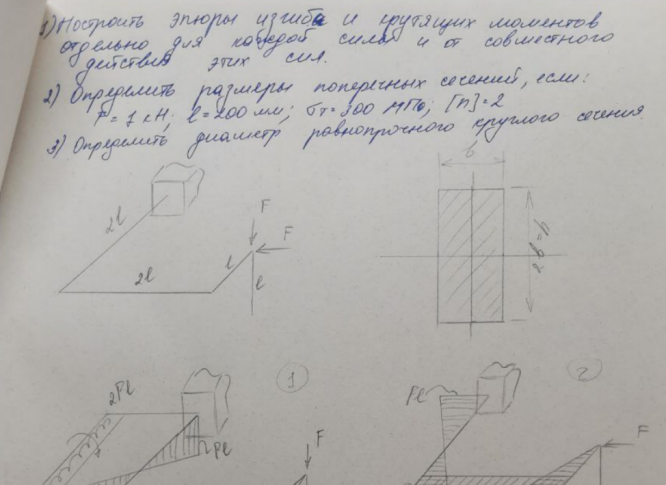 1) Построить эпюры изгиба и крутящих моментов
отдельно для каждой силы и от совместного
действия этих сил.
2) Определить размеры поперечных сечений, если:
F = 1 кН; l = 200 мм; σт = 300 МПа; [n] = 2
3) Определить диаметр равнопрочного круглого сечения.
b
2l
F
F
l
l
2l
1
2
2Fl
Fl
F
Fl
F